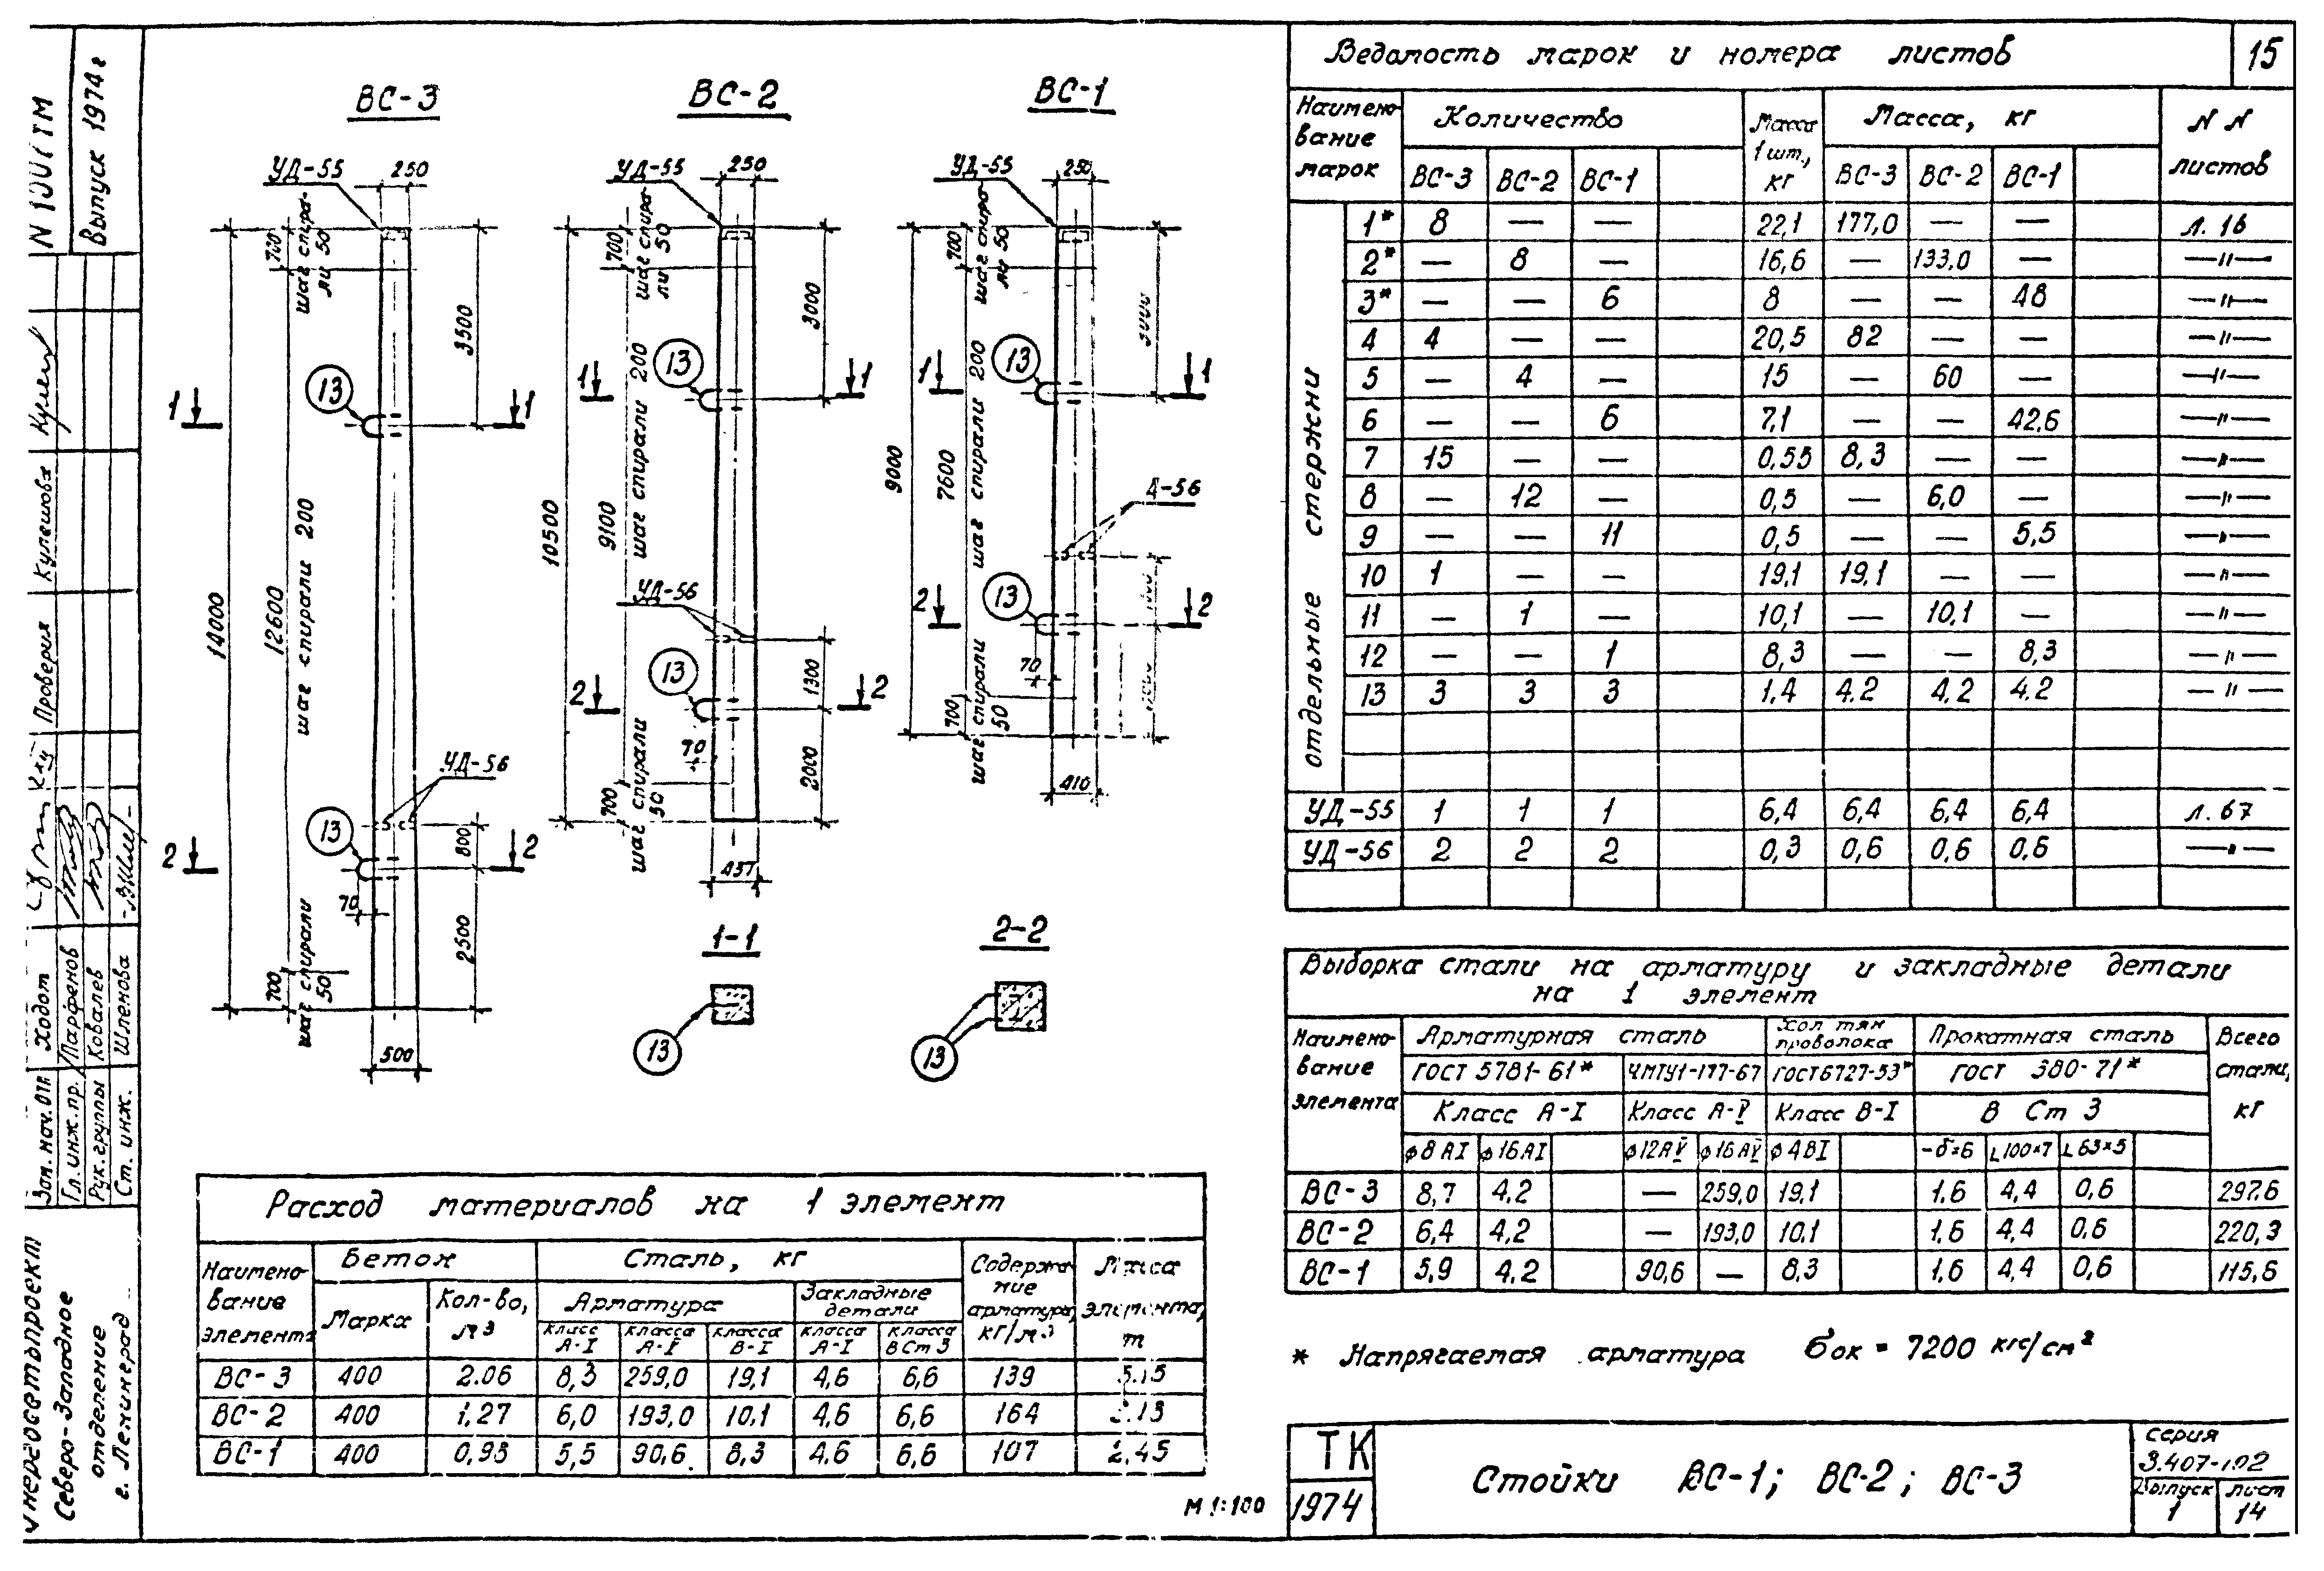 15
Ведомость марок и номера листов
Наимено-вание марок | Количество | Масса 1 шт., кг | Масса, кг | N N листов
ВС-3 | ВС-2 | ВС-1 | ВС-3 | ВС-2 | ВС-1
отдельные стержни
1* | 8 | — | — | 22,1 | 177,0 | — | — | л. 16
2* | — | 8 | — | 16,6 | — | 133,0 | — | —"—
3* | — | — | 6 | 8 | — | — | 48 | —"—
4 | 4 | — | — | 20,5 | 82 | — | — | —"—
5 | — | 4 | — | 15 | — | 60 | — | —"—
6 | — | — | 6 | 7,1 | — | — | 42,6 | —"—
7 | 15 | — | — | 0,55 | 8,3 | — | — | —"—
8 | — | 12 | — | 0,5 | — | 6,0 | — | —"—
9 | — | — | 11 | 0,5 | — | — | 5,5 | —"—
10 | 1 | — | — | 19,1 | 19,1 | — | — | —"—
11 | — | 1 | — | 10,1 | — | 10,1 | — | —"—
12 | — | — | 1 | 8,3 | — | — | 8,3 | —"—
13 | 3 | 3 | 3 | 1,4 | 4,2 | 4,2 | 4,2 | —"—
УД-55 | 1 | 1 | 1 | 6,4 | 6,4 | 6,4 | 6,4 | л. 67
УД-56 | 2 | 2 | 2 | 0,3 | 0,6 | 0,6 | 0,6 | —"—
Выборка стали на арматуру и закладные детали
на 1 элемент
Наимено-вание элемента | Арматурная сталь | Хол тян проволока | Прокатная сталь | Всего стали, кг
ГОСТ 5781-61* | ЧМТУ1-177-67 | ГОСТ6727-53* | ГОСТ 380-71*
Класс А-I | Класс А-V | Класс В-I | В Ст 3
φ8АI | φ16АI | φ12АV | φ16АV | φ4ВI | -δ=6 | L100×7 | L63×5
ВС-3 | 8,7 | 4,2 | — | 259,0 | 19,1 | 1,6 | 4,4 | 0,6 | 297,6
ВС-2 | 6,4 | 4,2 | — | 193,0 | 10,1 | 1,6 | 4,4 | 0,6 | 220,3
ВС-1 | 5,9 | 4,2 | 90,6 | — | 8,3 | 1,6 | 4,4 | 0,6 | 115,6
* Напрягаемая арматура σок = 7200 кгс/см²
ТК
1974
Стойки ВС-1; ВС-2; ВС-3
серия
3.407-102
Выпуск
1
лист
14
ВС-3
УД-55
250
шаг спира-
ли 50
700
14000
12600
3500
13
1
1
шаг спирали 200
УД-56
13
2
2
800
70
2500
шаг спирали
50
700
500
ВС-2
УД-55
250
шаг спира-
ли 50
700
3000
13
1
1
шаг спирали 200
10500
9100
УД-56
13
2
2
1300
70
2000
шаг спирали
50
700
437
ВС-1
УД-55
250
шаг спира-
ли 50
700
13
1
1
шаг спирали 200
9000
7600
13
2
2
70
шаг спирали
50
700
410
1-1
13
2-2
13
Расход материалов на 1 элемент
Наимено-вание элемента | Бетон | Сталь, кг | Содержа-ние арматуры, кг/м3 | Масса элемента, т
Марка | Кол-во, м3 | Арматура | Закладные детали
класс А-I | класса А-V | класса В-I | класса А-I | класса ВСт3
ВС-3 | 400 | 2.06 | 8,3 | 259,0 | 19,1 | 4,6 | 6,6 | 139 | 5.15
ВС-2 | 400 | 1,27 | 6,0 | 193,0 | 10,1 | 4,6 | 6,6 | 164
ВС-1 | 400 | 0,98 | 5,5 | 90,6 | 8,3 | 4,6 | 6,6 | 107 | 2,45
М 1:100
Выпуск 1974г
Проверил Кулешова
Зам. нач. ОТП Ходот
Гл. инж. пр. Парфенов
Рук. группы Ковалев
Ст. инж. Шленова
Северо-Западное
отделение
г. Ленинград